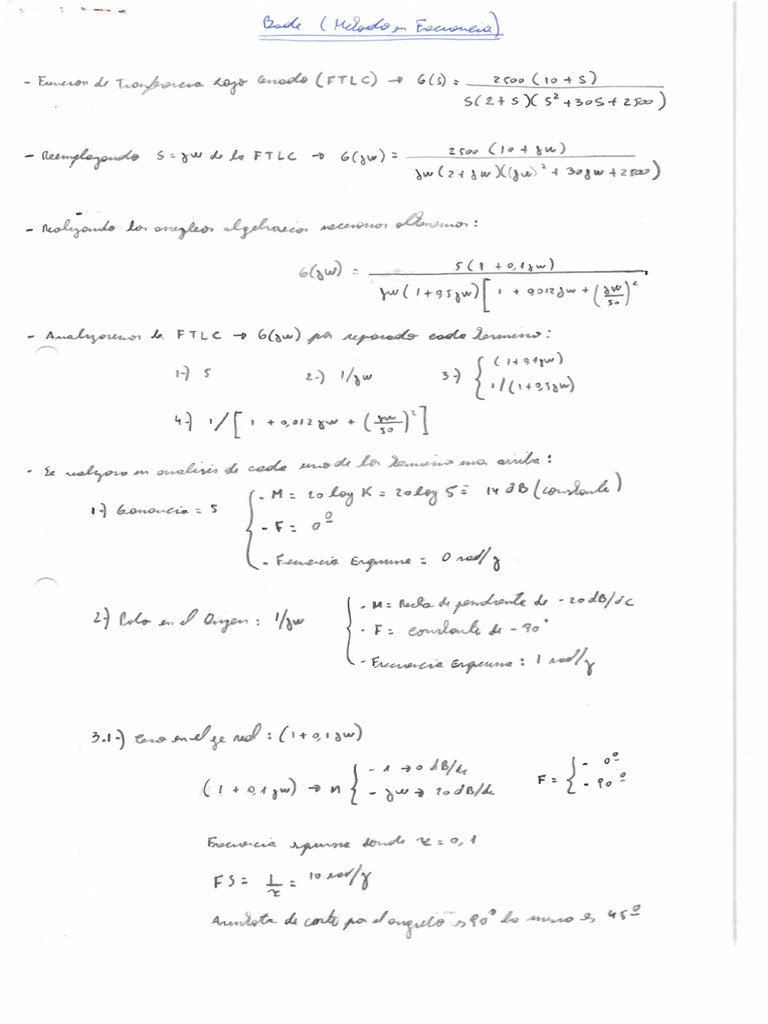 Bode (Metodo en Frecuencia)
- Funcion de Transferencia Lazo Cerrado (FTLC) → G(s) = 2500 (10 + s) / s(2 + s)(s² + 30s + 2500)
- Reemplazando s = jw de la FTLC → G(jw) = 2500 (10 + jw) / jw (2 + jw)((jw)² + 30jw + 2500)
- Realizando los arreglos algebraicos necesarios obtenemos:
G(jw) = 5(1 + 0,1jw) / jw (1 + 0,5jw) [ 1 + 0,012jw + (jw/50)²
- Analizaremos la FTLC → G(jw) por separado cada termino:
1-) 5 2-) 1/jw 3-) { (1 + 0,1jw) 1/(1 + 0,5jw)
4-) 1/[ 1 + 0,012jw + (jw/50)² ]
- Se realizara un analisis de cada uno de los termino mas arriba:
1-) Ganancia = 5 { - M = 20 log K = 20 log 5 = 14 dB (constante)
- F = 0º
- Frecuencia Esquina = 0 rad/s
2-) Polo en el Origen: 1/jw { - M = Recta de pendiente de -20 dB/dc
- F = constante de -90°
- Frecuencia Esquina: 1 rad/s
3.1-) Cero en el eje real: (1 + 0,1jw)
(1 + 0,1jw) → M { - 1 → 0 dB/dc - jw → 20 dB/dc F = { - 0º - 90º
Frecuencia esquina donde τ = 0,1
FS = 1/τ = 10 rad/s
de corte por el angulo es 90° la es 45º